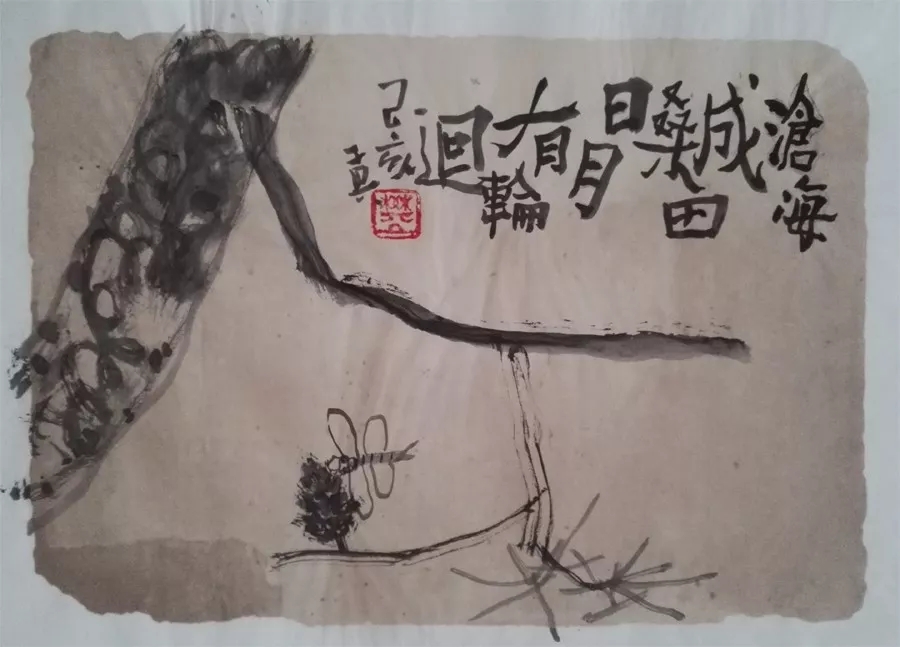 滄海
成桑田
日月
有輪
迴
己亥